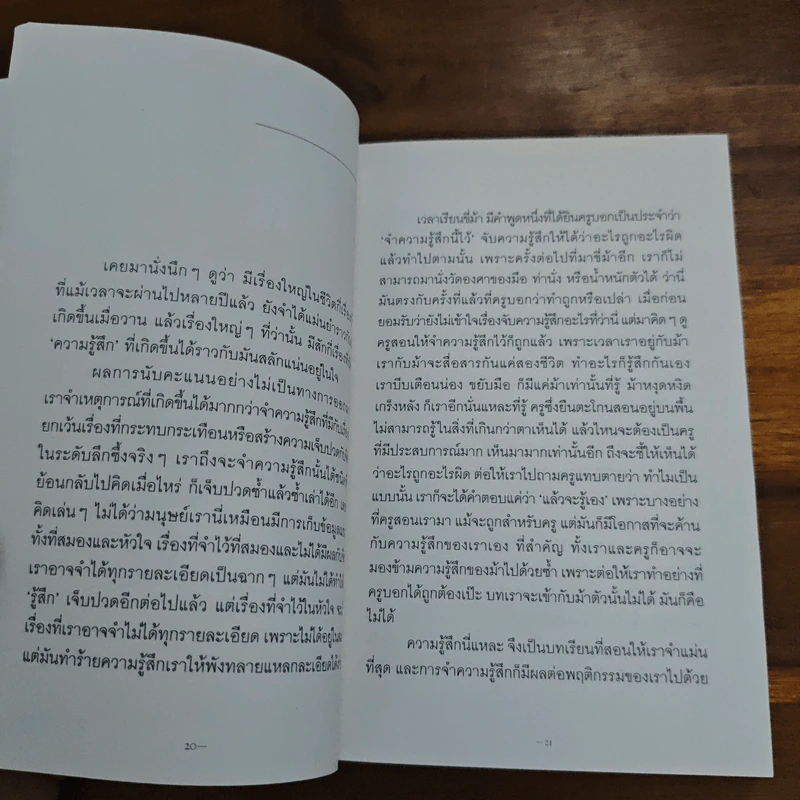 เคยมานั่งนึกๆ ดูว่า มีเรื่องใหญ่ในชีวิตกี่เรื่อง
ที่แม้เวลาจะผ่านไปหลายปีแล้ว ยังจำได้แม่นยำราวกับ
เกิดขึ้นเมื่อวาน แล้วเรื่องใหญ่ๆ ที่ว่านั้น มีสักกี่เรื่องที่
‘ความรู้สึก’ ที่เกิดขึ้นได้ราวกับมันสลักแน่นอยู่ในใจ
ผลการนับคะแนนอย่างไม่เป็นทางการออก
เราจำเหตุการณ์ที่เกิดขึ้นได้มากกว่าจำความรู้สึกที่มีกับ
ยกเว้นเรื่องที่กระทบกระเทือนหรือสร้างความเจ็บปวด
ในระดับลึกซึ้งจริงๆ เราถึงจะจำความรู้สึกนั้นได้
ย้อนกลับไปคิดเมื่อไหร่ ก็เจ็บปวดซ้ำแล้วซ้ำเล่าได้อีก
คิดเล่นๆ ไม่ได้ว่ามนุษย์เรานี่เหมือนมีการเก็บข้อมูล
ทั้งที่สมองและหัวใจ เรื่องที่จำไว้ที่สมองและไม่ได้มีผลกับ
เราอาจจำได้ทุกรายละเอียดเป็นฉากๆ แต่มันไม่ได้ทำให้
‘รู้สึก’ เจ็บปวดอีกต่อไปแล้ว แต่เรื่องที่จำไว้ในหัวใจ
เรื่องที่เราอาจจำไม่ได้ทุกรายละเอียด เพราะไม่ได้อยู่ใน
แต่มันทำร้ายความรู้สึกเราให้พังทลายแหลกละเอียดได้
20—
เวลาเรียนขี่ม้า มีคำพูดหนึ่งที่ได้ยินครูบอกเป็นประจำว่า
‘จำความรู้สึกนี้ไว้’ จับความรู้สึกให้ได้ว่าอะไรถูกอะไรผิด
แล้วทำไปตามนั้น เพราะครั้งต่อไปที่มาขี่ม้าอีก เราก็ไม่
สามารถมานั่งวัดองศาของมือ ท่านั่ง หรือน้ำหนักตัวได้ ว่านี่
มันตรงกับครั้งที่แล้วที่ครูบอกว่าทำถูกหรือเปล่า เมื่อก่อน
ยอมรับว่ายังไม่เข้าใจเรื่องจับความรู้สึกอะไรที่ว่านี่ แต่มาคิดๆ ดู
ครูสอนให้จำความรู้สึกไว้ก็ถูกแล้ว เพราะเวลาเราอยู่กับม้า
เรากับม้าจะสื่อสารกันแค่สองชีวิต ทำอะไรก็รู้สึกกันเอง
เราบีบเตือนน่อง ขยับมือ ก็มีแค่ม้าเท่านั้นที่รู้ ม้าหงุดหงิด
เกร็งหลัง ก็เราอีกนั่นแหละที่รู้ ครูซึ่งยืนตะโกนสอนอยู่บนพื้น
ไม่สามารถรู้ในสิ่งที่เกินกว่าตาเห็นได้ แล้วไหนจะต้องเป็นครู
ที่มีประสบการณ์มาก เห็นมามากเท่านั้นอีก ถึงจะชี้ให้เห็นได้
ว่าอะไรถูกอะไรผิด ต่อให้เราไปถามครูแทบตายว่า ทำไมเป็น
แบบนั้น เราก็จะได้คำตอบแค่ว่า ‘แล้วจะรู้เอง’ เพราะบางอย่าง
ที่ครูสอนเรามา แม้จะถูกสำหรับครู แต่มันก็มีโอกาสที่จะค้าน
กับความรู้สึกของเราเอง ที่สำคัญ ทั้งเราและครูก็อาจจะ
มองข้ามความรู้สึกของม้าไปด้วยซ้ำ เพราะต่อให้เราทำอย่างที่
ครูบอกได้ถูกต้องเป๊ะ บทเราจะเข้ากับม้าตัวนั้นไม่ได้ มันก็คือ
ไม่ได้
ความรู้สึกนี่แหละ จึงเป็นบทเรียนที่สอนให้เราจำแม่น
ที่สุด และการจำความรู้สึกก็มีผลต่อพฤติกรรมของเราไปด้วย
—21